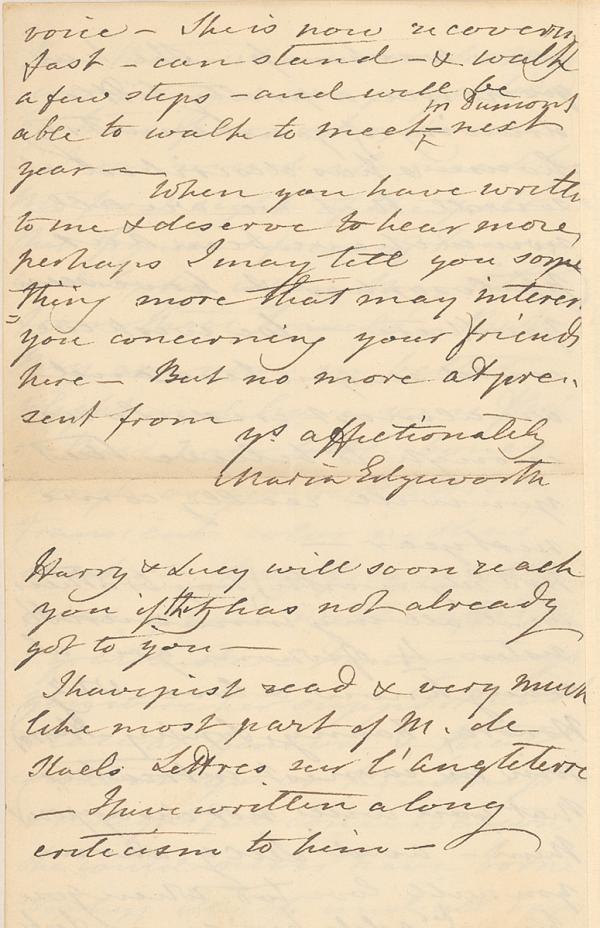 voice – She is now recovering
fast – can stand – & walk
a few steps – and will be
able to walk to meet M Dumont next
year —
When you have written
to me & deserve to hear more,
perhaps I may tell you some
=thing more that may interest
you concerning your friends
here – But no more at pre-
sent from
yrs affectionately
Maria Edgeworth
Harry & Lucy will soon reach
you if they has not already
got to you —
I have just read & very much
like most part of M. de
Staels Lettres sur l'angleterre
— I have written a long
criticism to him –